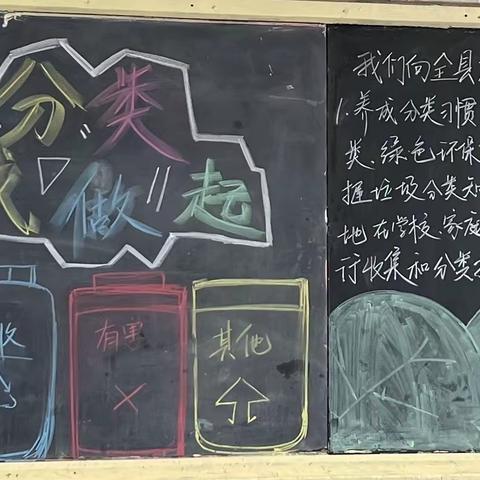 分类
做起
收
有害
其他
我们向全县
1.养成分类习惯
类、绿色环保
握垃圾分类知
地在学校、家庭
行收集和分类